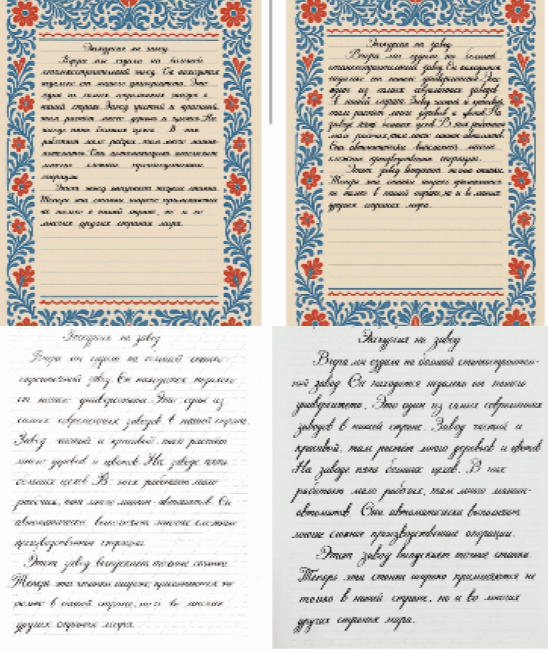 Экскурсия на завод
Вчера мы ездили на большой
станкостроительный завод. Он находится
недалеко от нашего университета. Это
один из самых современных заводов в
нашей стране. Завод чистый и красивый,
там растёт много деревьев и цветов. На
заводе пять больших цехов. В них
работает мало рабочих, там много машин-
автоматов. Они автоматически выполняют
многие сложные производственные
операции.
Этот завод выпускает станки.
Теперь эти станки широко применяются
не только в нашей стране, но и во
многих других странах мира.
Экскурсия на завод
Вчера мы ездили на большой
станкостроительный завод. Он находится
недалеко от нашего университета. Это
один из самых современных заводов
в нашей стране. Завод чистый и красивый,
там растёт много деревьев и цветов. На
заводе пять больших цехов. В них работает
мало рабочих, там много машин-автоматов.
Они автоматически выполняют многие
сложные производственные операции.
Этот завод выпускает точные станки.
Теперь эти станки широко применяются
не только в нашей стране, но и во многих
других странах мира.
Экскурсия на завод
Вчера мы ездили на большой станко-
строительный завод. Он находится недалеко
от нашего университета. Это один из
самых современных заводов в нашей стране.
Завод чистый и красивый, там растёт
много деревьев и цветов. На заводе пять
больших цехов. В них работает мало
рабочих, там много машин-автоматов. Они
автоматически выполняют многие сложные
производственные операции.
Этот завод выпускает точные станки.
Теперь эти станки широко применяются не
только в нашей стране, но и во многих
других странах мира.
Экскурсия на завод
Вчера мы ездили на большой станкостроитель-
ный завод. Он находится недалеко от нашего
университета. Это один из самых современных
заводов в нашей стране. Завод чистый и
красивый, там растёт много деревьев и цветов.
На заводе пять больших цехов. В них
работает мало рабочих, там много машин-
автоматов. Они автоматически выполняют
многие сложные производственные операции.
Этот завод выпускает точные станки.
Теперь эти станки широко применяются не
только в нашей стране, но и во многих
других странах мира.